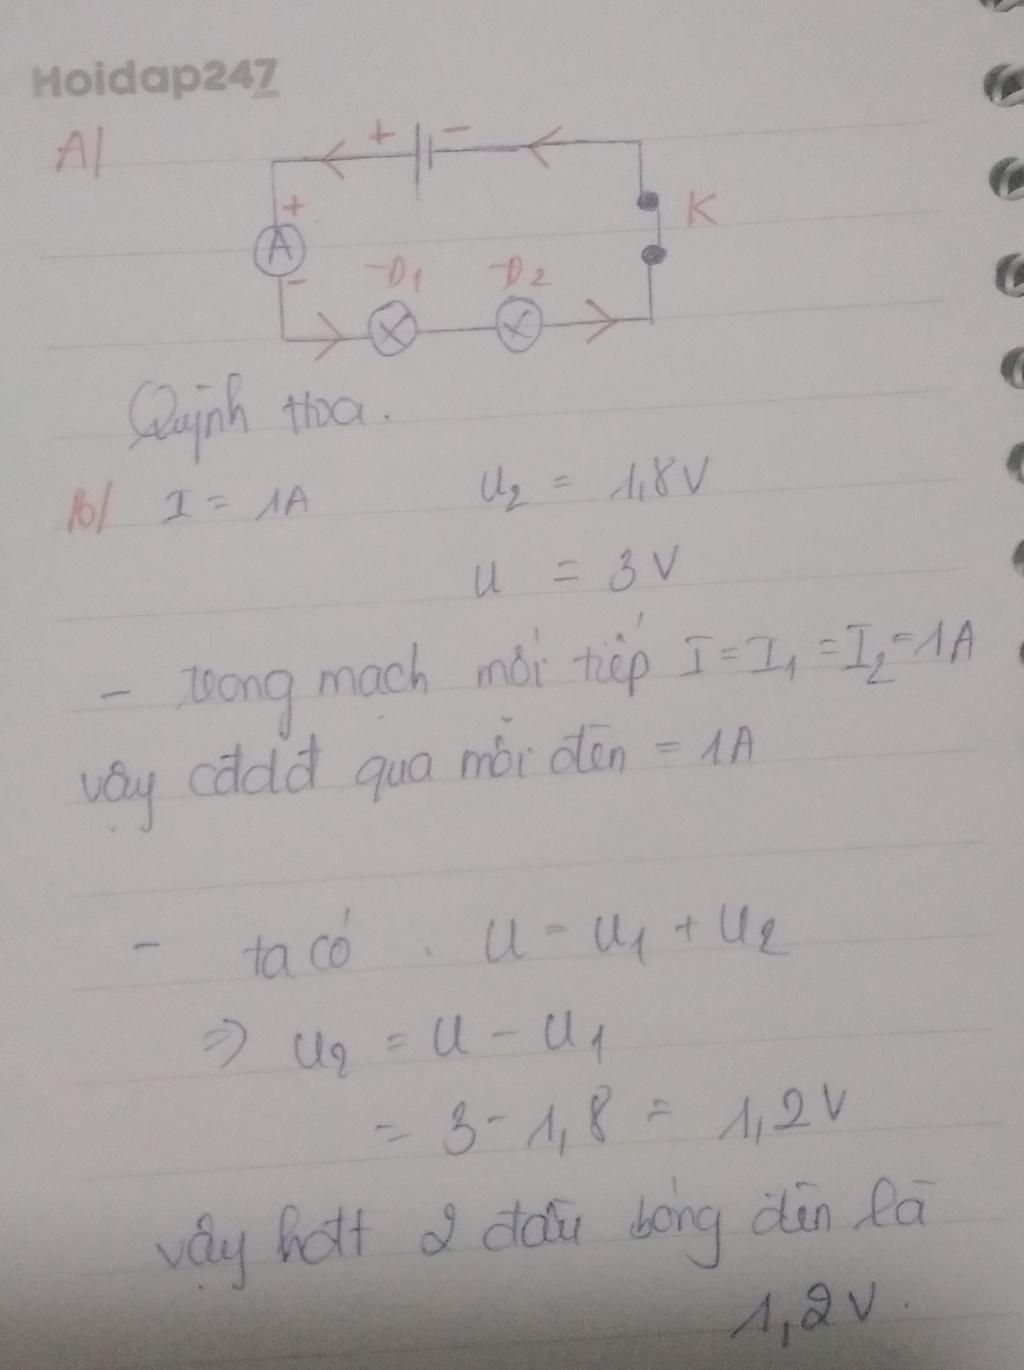 Hoidap247
A/
+ -
+
K
A
-
Đ1 Đ2
Quỳnh Hoa.
b/ I = 1A U2 = 1,8V
U = 3V
- trong mạch nối tiếp I = I1 = I2 = 1A
vậy cđdđ qua mỗi đèn = 1A
- ta có . U = U1 + U2
=> U2 = U - U1
= 3 - 1,8 = 1,2V
vậy hđt 2 đầu bóng đèn là
1,2V.